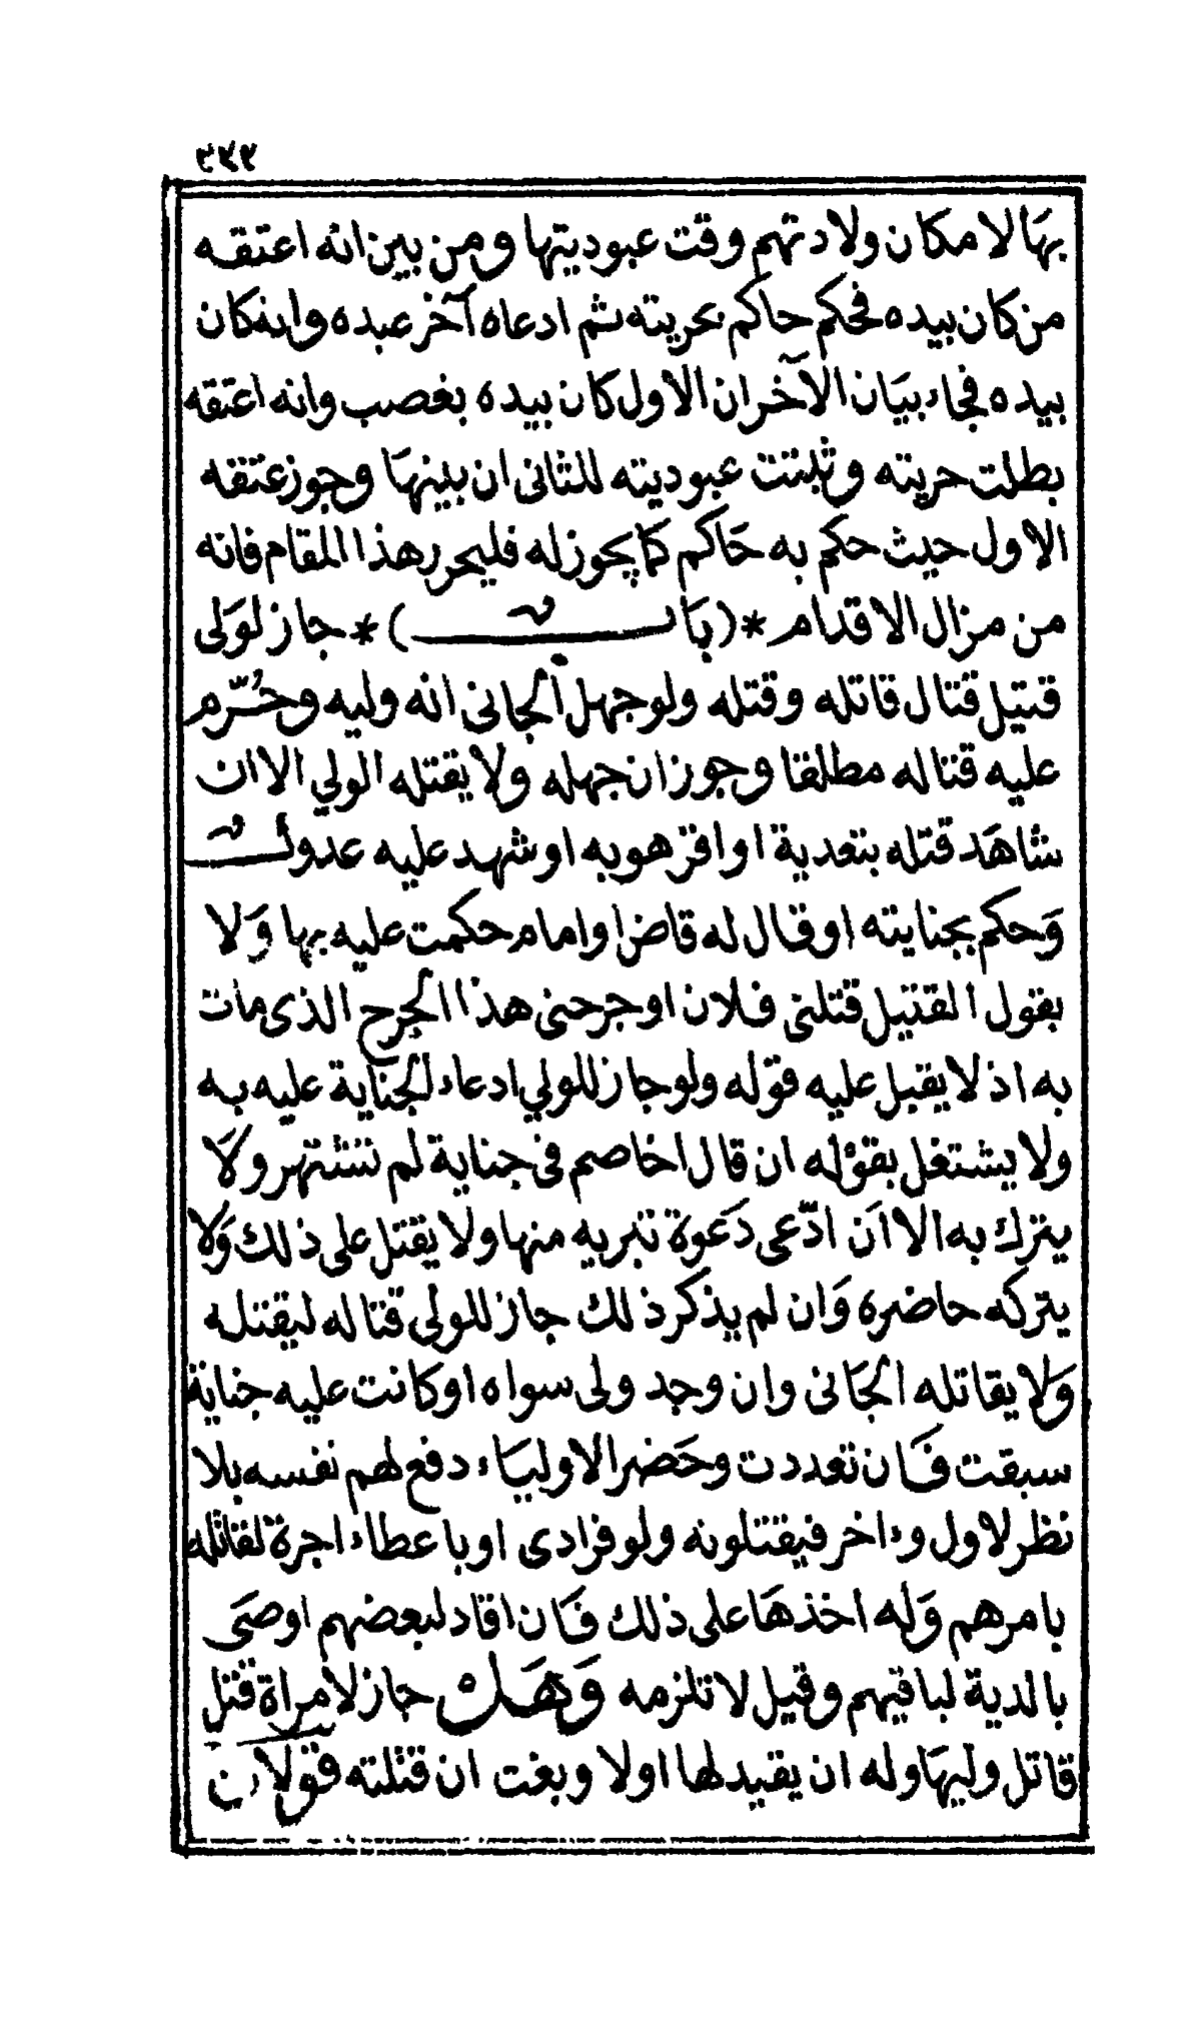 ٣٧٢
بهَا لامكان ولادتهم وقت عبوديتها ومن بين انه اعتقه
من كان بيده فحكم حاكم بحريته ثم ادعاه آخر عبده وانه كان
بيده فجاء ببيَان الآخر ان الاول كان بيده بغصب وانه اعتقه
بطلت حريته وثبتت عبوديته للثانى ان بينهَا وجوز عتقه
الاول حيث حكم به حَاكم كما يجوز له فليحرر هذا المقام فانه
من مزال الاقدام *(بَابٌ)* جاز لوَلى
قتيل قتال قاتله وقتله ولو جهل الجانى انه وليه وحُرّم
عليه قتاله مطلقا وجوز ان جهله ولا يقتله الولي الا ان
شاهَد قتله بتعدية او اقر هو به او شهد عليه عدولٌ
وَحكم بجنايته او قال له قاض او امام حكمت عليه بها وَلا
بقول القتيل قتلنى فلان او جرحنى هذا الجرح الذى مات
به اذ لا يقبل عليه قوله ولو جاز للولي ادعاء الجنَاية عليه به
ولا يشتغل بقوْله ان قال اخاصم فى جناية لم تشتهر ولاَ
يترك به الا اَن ادّعى دَعوة تبريه منها ولا يقتل على ذلك وَلا
يتركه حاضره وَان لم يذكر ذلك جاز للولى قتاله ليقتله
وَلا يقاتله الجَانى وان وجد ولى سواه او كانت عليه جناية
سبقت فَان تعددت وحَضر الاوليَاء دفع لهم نفسه بلا
نظر لاول وءاخر فيقتلونه ولو فرادى او باعطاء اجرة لقاتله
بامرهم وَله اخذهَا على ذلك فَان اقاد لبعضهم اوصَى
بالدية لباقيهم وقيل لا تلزمه وَهَل جاز لامراة قتل
قاتل وليهَا وله ان يقيد لها اولا وبغت ان قتلته قولان